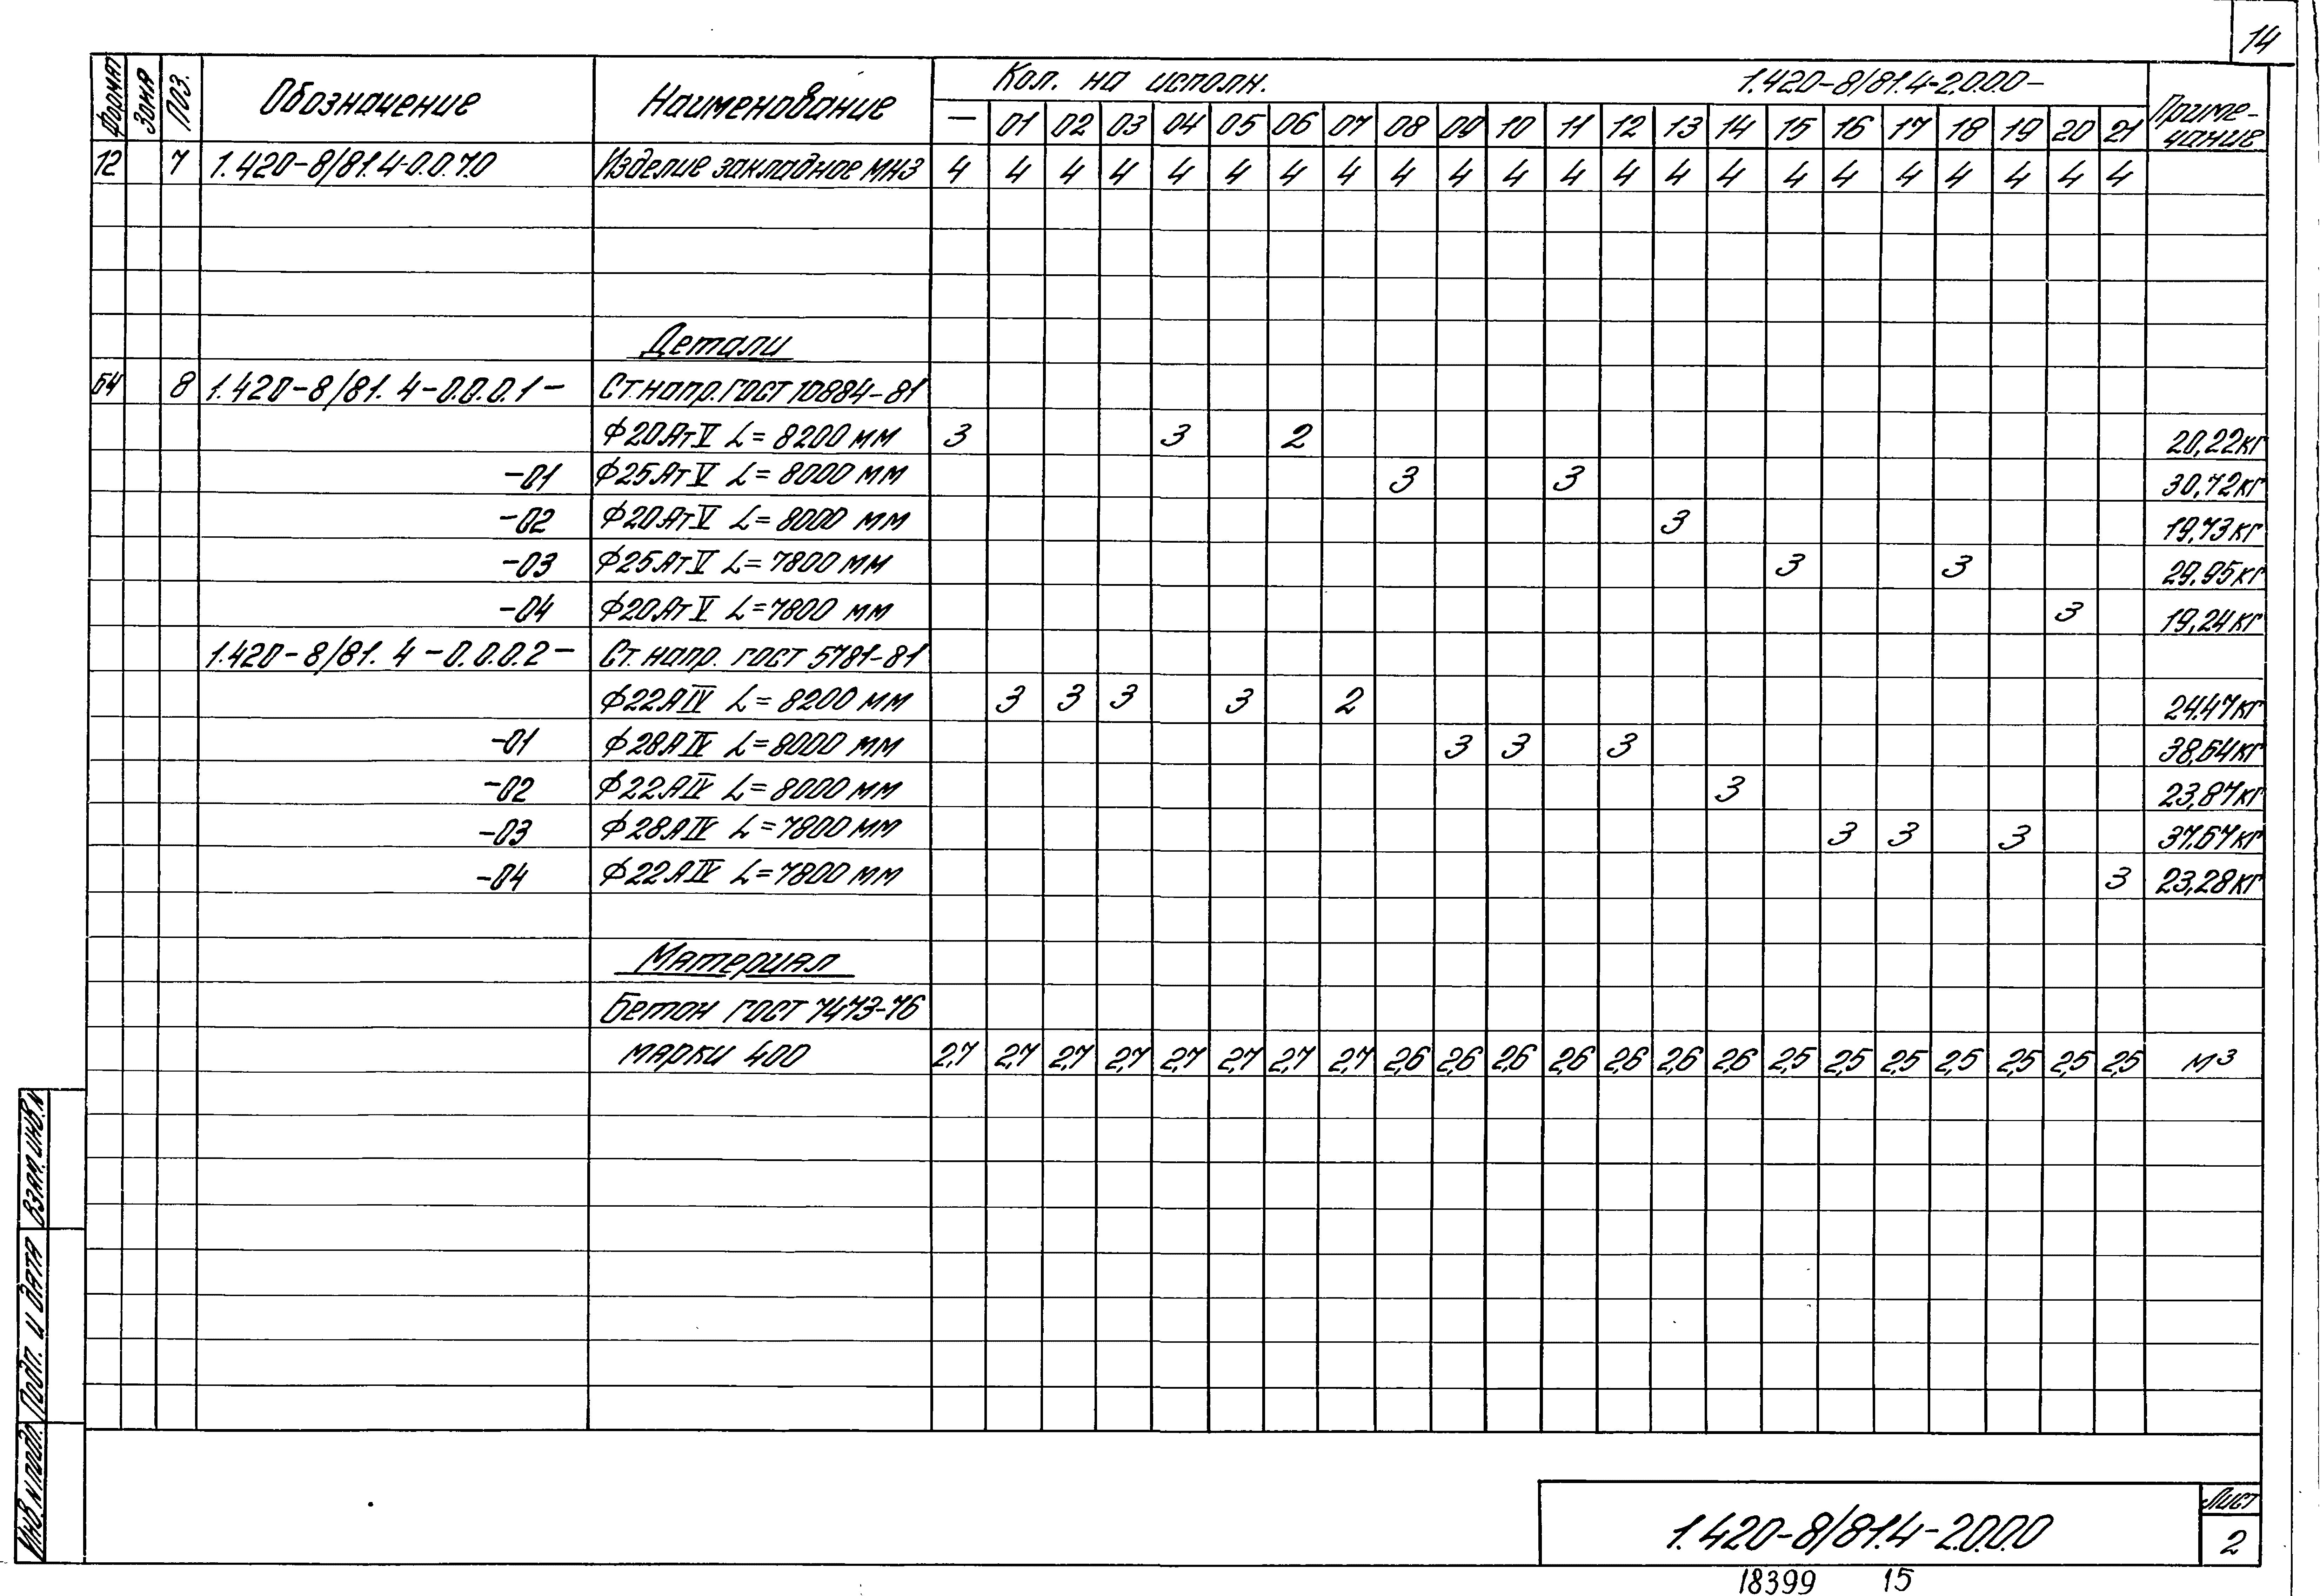 14
Формат Зона Поз. Обозначение Наименование Кол. на исполн. 1.420-8/81.4-2.0.0.0- Приме-чание
— 01 02 03 04 05 06 07 08 09 10 11 12 13 14 15 16 17 18 19 20 21
12 7 1.420-8/81.4-0.0.7.0 Изделие закладное МН3 4 4 4 4 4 4 4 4 4 4 4 4 4 4 4 4 4 4 4 4 4 4
Детали
Б4 8 1.420-8/81.4-0.0.0.1- Ст.напр.ГОСТ 10884-81
ф20АтV L=8200 мм 3 3 2 20,22кг
-01 ф25АтV L=8000 мм 3 3 30,72кг
-02 ф20АтV L=8000 мм 3 19,73кг
-03 ф25АтV L=7800 мм 3 3 29,95кг
-04 ф20АтV L=7800 мм 3 19,24кг
1.420-8/81.4-0.0.0.2- Ст.напр. ГОСТ 5781-81
ф22АIV L=8200 мм 3 3 3 3 2 24,47кг
-01 ф28АIV L=8000 мм 3 3 3 38,64кг
-02 ф22АIV L=8000 мм 3 23,87кг
-03 ф28АIV L=7800 мм 3 3 3 37,67кг
-04 ф22АIV L=7800 мм 3 23,28кг
Материал
Бетон ГОСТ 7473-76
марки 400 2,7 2,7 2,7 2,7 2,7 2,7 2,7 2,7 2,6 2,6 2,6 2,6 2,6 2,6 2,6 2,5 2,5 2,5 2,5 2,5 2,5 2,5 м³
Взам.инв.N
Подп. и дата
Инв.N подл.
1.420-8/81.4-2.0.0.0
Лист
2
18399 15